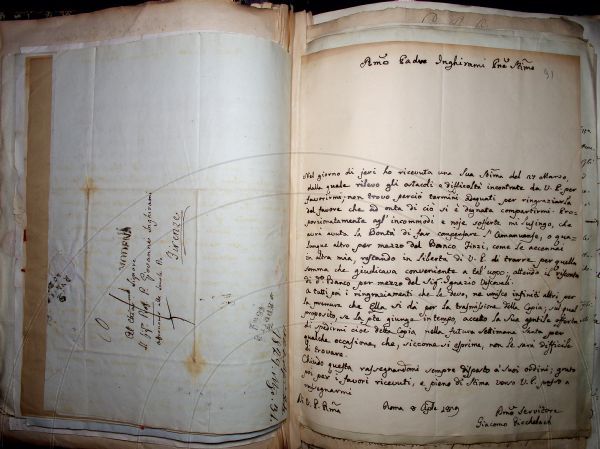 Al Molto Revdo Signore
Il Sigr Pad. P. Giovanni Inghirami
Firenze
Amo Padre Inghirami Pne Stimo
91
Nel giorno di jeri ho ricevuta una Sua Stima del 27 Marzo,
dalla quale rilevo gli ostacoli e difficoltà incontrate da V. P. per
favorirmi; non trovo perciò termini adeguati per ringraziarla
del favore che ad onta di ciò si è degnata compartirmi. Pro-
porzionatamente agl' incommodi e noje sofferte mi lusingo, che
avrà avuta la Bontà di far compensare l' Amanuense, o qua-
lunque altro per mezzo del Banco Finzi, come Le accennai
in altra mia, restando in libertà di V. P. di trarre per quella
somma che giudicava conveniente a tal uopo, attesa il
di do Banco per mezzo del Sigr Ignazio
a tutti poi i ringraziamenti che Le devo, ne unisce infiniti altri per
la premura che Ella si dà per la trasmissione della Copia; sul qual
proposito, se la pte giunge in tempo, accetto la Sua gentile offerta
di spedirmi cioè detta Copia nella futura Settimana Santa per
qualche occasione, che, siccome si esprime, non Le sarà difficile
di trovare.
Chiudo questa rassegnandomi sempre disposto a' Suoi ordini; grato
poi per i favori ricevuti, e pieno di Stima verso V. P. passo a
rassegnarmi
Di V. P. Rma
Roma 8 Aple 1819
Servitore
Giacomo